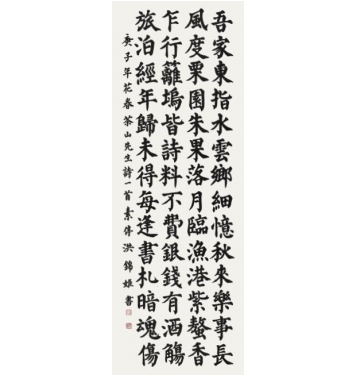 吾家東指水雲鄉細憶秋來樂事長
風度栗園朱果落月臨漁港紫螯香
乍行籬塢皆詩料不費銀錢有酒觴
旅泊經年歸未得每逢書札暗魂傷
庚子年花春茶山先生詩一首素 洪錦姬書